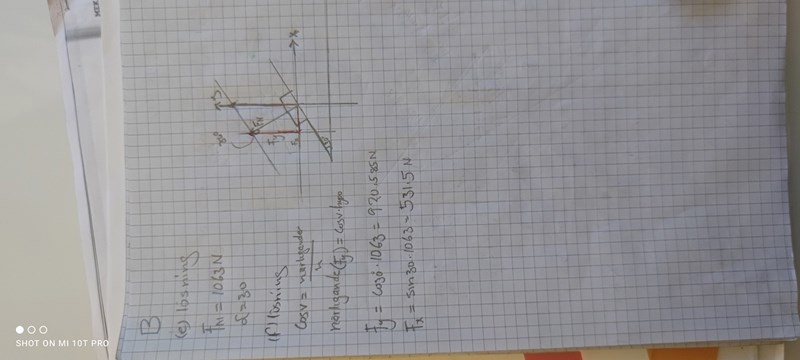 B
(e) lösning
FN1 = 1063 N
α = 30
(f) lösning
Cosv = närliggande
h
närligande (Fy) = cosv · hyp
Fy = cos · 1063 = 920.585 N
Fx = sin 30 · 1063 = 531.5 N
Fy
SHOT ON MI 10T PRO